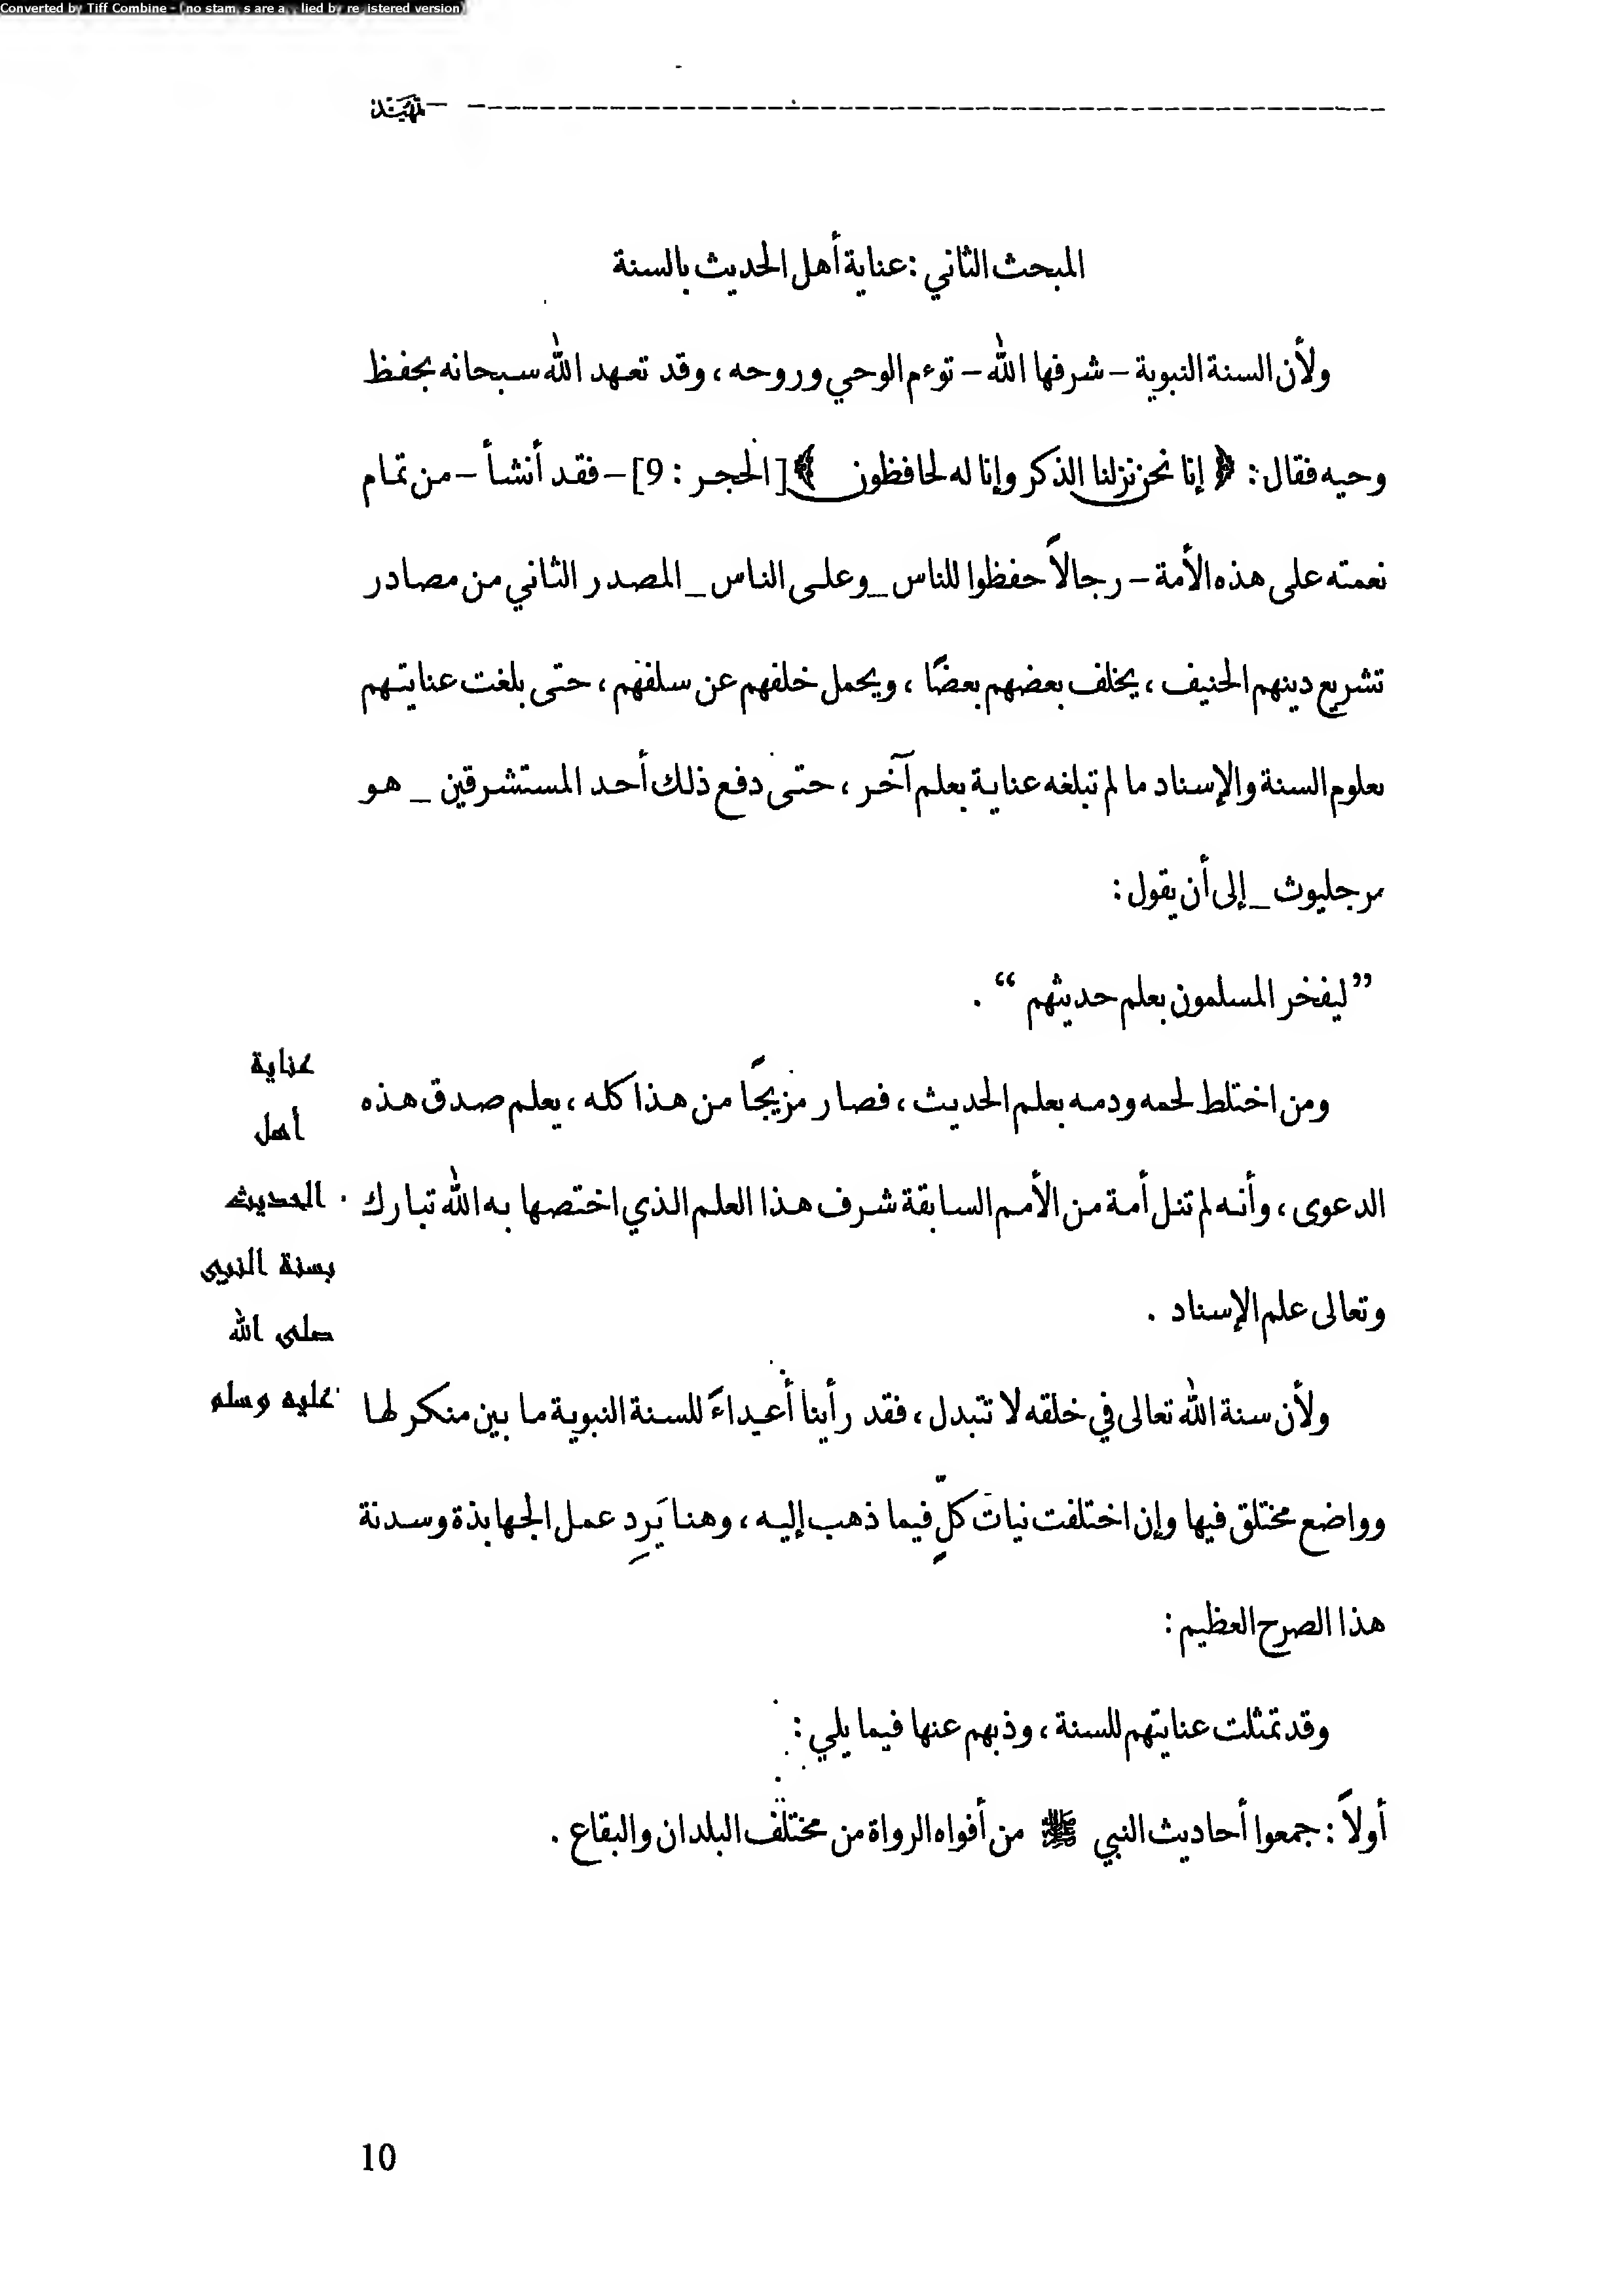 Converted by Tiff Combine - (no stamps are applied by registered version)
تمهيد
المبحث الثاني : عناية أهل الحديث بالسنة
ولأن السنة النبوية – شرفها الله – توءم الوحي وروحه ، وقد تعهد الله سبحانه بحفظ
وحيه فقال : ﴿ إنا نحن نزلنا الذكر وإنا له لحافظون ﴾ [ الحجر : 9] – فقد أنشأ – من تمام
نعمته على هذه الأمة – رجالاً حفظوا للناس _ وعلى الناس _ المصدر الثاني من مصادر
تشريع دينهم الحنيف ، يخلف بعضهم بعضًا ، ويحمل خلفهم عن سلفهم ، حتى بلغت عنايتهم
بعلوم السنة والإسناد ما لم تبلغه عناية بعلم آخر ، حتى دفع ذلك أحد المستشرقين _ هو
مرجليوث _ إلى أن يقول :
” ليفخر المسلمون بعلم حديثهم “ .
ومن اختلط لحمه ودمه بعلم الحديث ، فصار مزيجًا من هذا كله ، يعلم صدق هذه
الدعوى ، وأنه لم تنل أمة من الأمم السابقة شرف هذا العلم الذي اختصها به الله تبارك
وتعالى علم الإسناد .
عناية
أهل
الحديث
بسنة النبي
صلى الله
عليه وسلم
ولأن سنة الله تعالى في خلقه لا تتبدل ، فقد رأينا أعداءً للسنة النبوية ما بين منكر لها
وواضع مختلق فيها وإن اختلفت نيات كلٍّ فيما ذهب إليه ، وهنا يَرِد عمل الجهابذة وسدنة
هذا الصرح العظيم :
وقد تمثلت عنايتهم للسنة ، وذبهم عنها فيما يلي :
أولاً : جمعوا أحاديث النبي ﷺ من أفواه الرواة من مختلف البلدان والبقاع .
10